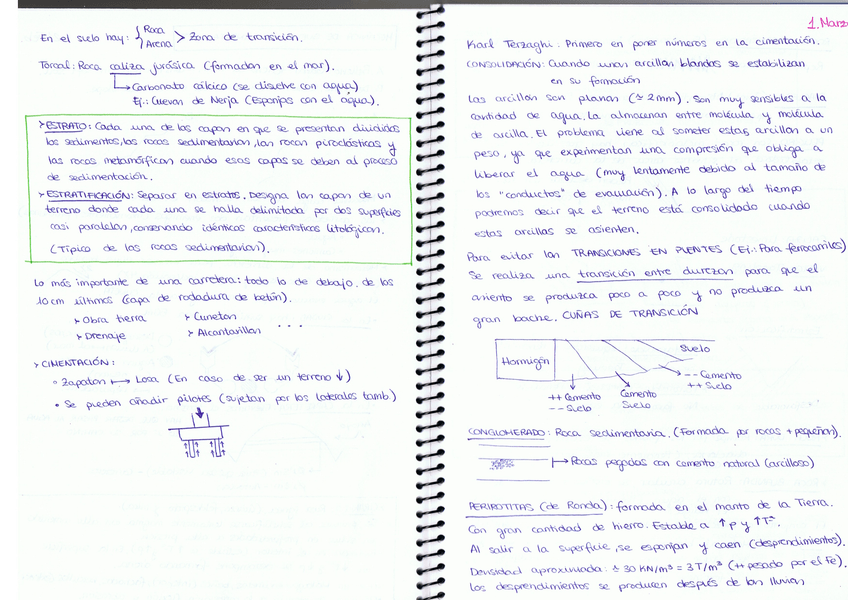 En el suelo hay: { Roca
Arena > Zona de transición.
Torcal: Roca caliza jurásica (formadas en el mar).
Carbonato cálcico (se disuelve con agua)
Ej.: Cuevas de Nerja (Esponjas con el agua).
> ESTRATO: Cada una de las capas en que se presentan divididos
los sedimentos, las rocas sedimentarias, las rocas piroclásticas y
las rocas metamórficas cuando esas capas se deben al proceso
de sedimentación.
> ESTRATIFICACIÓN: Separar en estratos. Designa las capas de un
terreno donde cada una se halla delimitada por dos superficies
casi paralelas, conservando idénticas características litológicas.
(Típico de las rocas sedimentarias).
Lo más importante de una carretera: todo lo de debajo, de los
10cm últimos (capa de rodadura de betún).
> Obra tierra > Cunetas
> Drenaje > Alcantarillas ...
> CIMENTACIÓN:
◦ Zapatas ↦ Losa (En caso de ser un terreno ↓)
• Se pueden añadir pilotes (sujetan por los laterales tamb.)
1. Marzo
Karl Terzaghi. Primero en poner números en la cimentación.
CONSOLIDACIÓN: Cuando unas arcillas blandas se estabilizan
en su formación
Las arcillas son planas (≃ 2mm). Son muy sensibles a la
cantidad de agua. La almacenan entre molécula y molécula
de arcilla. El problema viene al someter estas arcillas a un
peso, ya que experimentan una compresión que obliga a
liberar el agua (muy lentamente debido al tamaño de
los "conductos" de evacuación). A lo largo del tiempo
podremos decir que el terreno está consolidado cuando
estas arcillas se asienten.
Para evitar las TRANSICIONES EN PUENTES (Ej.: Para ferrocarriles)
Se realiza una transición entre durezas para que el
asiento se produzca poco a poco y no produzca un
gran bache. CUÑAS DE TRANSICIÓN
Hormigón
Suelo
-- Cemento
++ Suelo
++ Cemento
-- Suelo
Cemento
Suelo
CONGLOMERADO: Roca sedimentaria. (Formada por rocas + pequeñas).
↦ Rocas pegadas con cemento natural (arcilloso)
PERIDOTITAS (de Ronda): formada en el manto de la Tierra.
Con gran cantidad de hierro. Estable a ↑P y ↑Tª.
Al salir a la superficie, se esponjan y caen (desprendimientos).
Densidad aproximada: ≃ 30 KN/m³ = 3T/m³ (++ pesado por el Fe).
Los desprendimientos se producen después de las lluvias